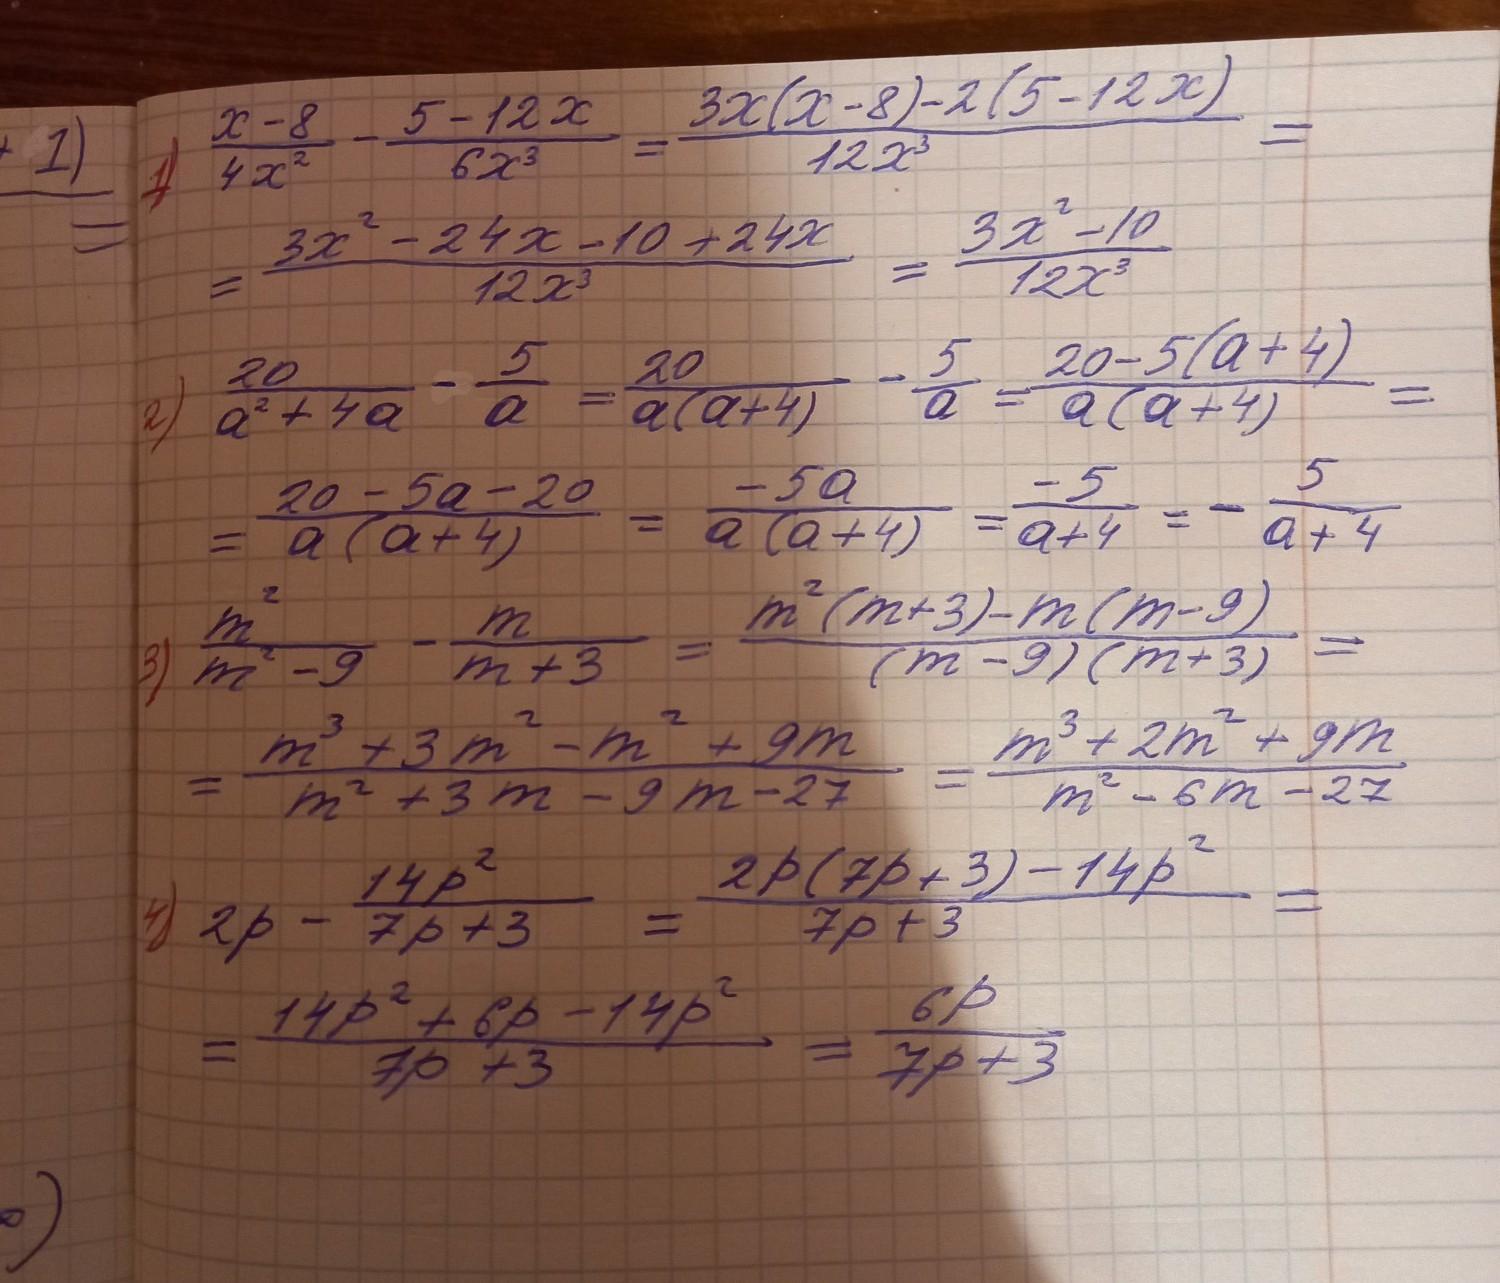 + 1)
=
1) (x-8)/(4x²) - (5-12x)/(6x³) = (3x(x-8)-2(5-12x))/(12x³) =
= (3x²-24x-10+24x)/(12x³) = (3x²-10)/(12x³)
2) 20/(a²+4a) - 5/a = 20/(a(a+4)) - 5/a = (20-5(a+4))/(a(a+4)) =
= (20-5a-20)/(a(a+4)) = (-5a)/(a(a+4)) = (-5)/(a+4) = - 5/(a+4)
3) m²/(m²-9) - m/(m+3) = (m²(m+3)-m(m-9))/((m-9)(m+3)) =
= (m³+3m²-m²+9m)/(m²+3m-9m-27) = (m³+2m²+9m)/(m²-6m-27)
4) 2p - 14p²/(7p+3) = (2p(7p+3)-14p²)/(7p+3) =
= (14p²+6p-14p²)/(7p+3) = 6p/(7p+3)